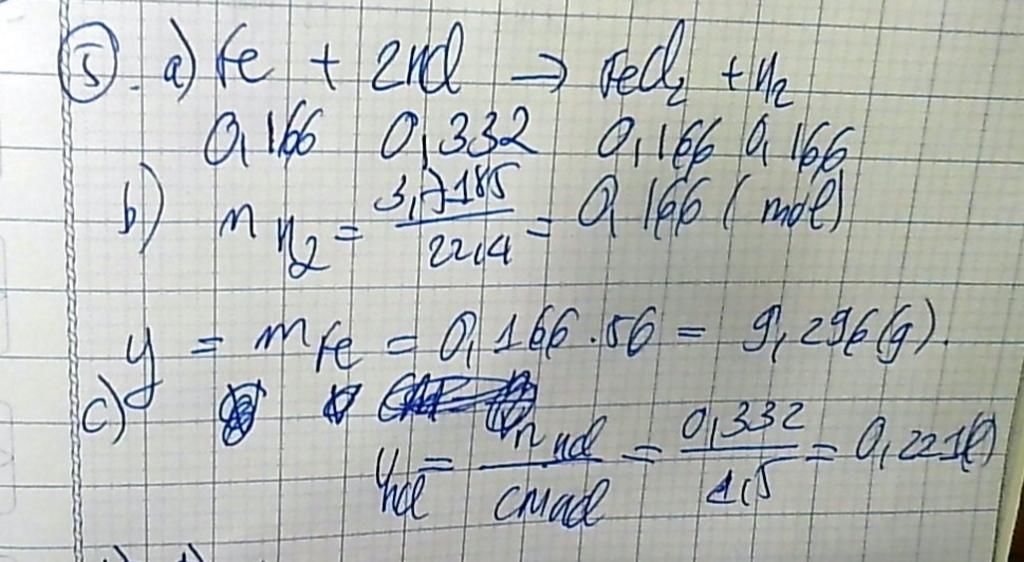 5. a) Fe + 2HCl → FeCl₂ + H₂
0,166 0,332 0,166 0,166
b) n H₂ = 3,7185 / 22,4 = 0,166 (mol)
y = mFe = 0,166 . 56 = 9,296 (g).
c)
VHCl = nHCl / CMHCl = 0,332 / 1,5 = 0,221(l)